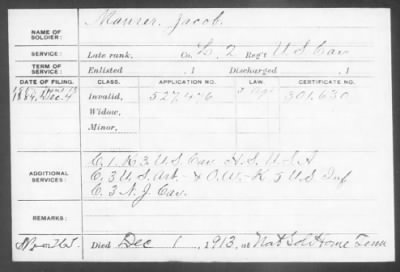 NAME OF SOLDIER: Maurer, Jacob
SERVICE: Late rank, Co. L, 2 Reg't U S Cav
TERM OF SERVICE: Enlisted , 1 Discharged , 1
DATE OF FILING. CLASS. APPLICATION NO. LAW. CERTIFICATE NO.
1884, Dec. 4 Invalid, 527,476 301,630
Widow,
Minor,
ADDITIONAL SERVICES: C. 1, K 3 U.S. Cav H.S. U.S.A
C. 3 U.S. Art. & O.W. - K 5 U.S. Inf
C. 3 N. J. Cav.
REMARKS:
Died Dec 1, 1913, at Nat Sol Home Tenn